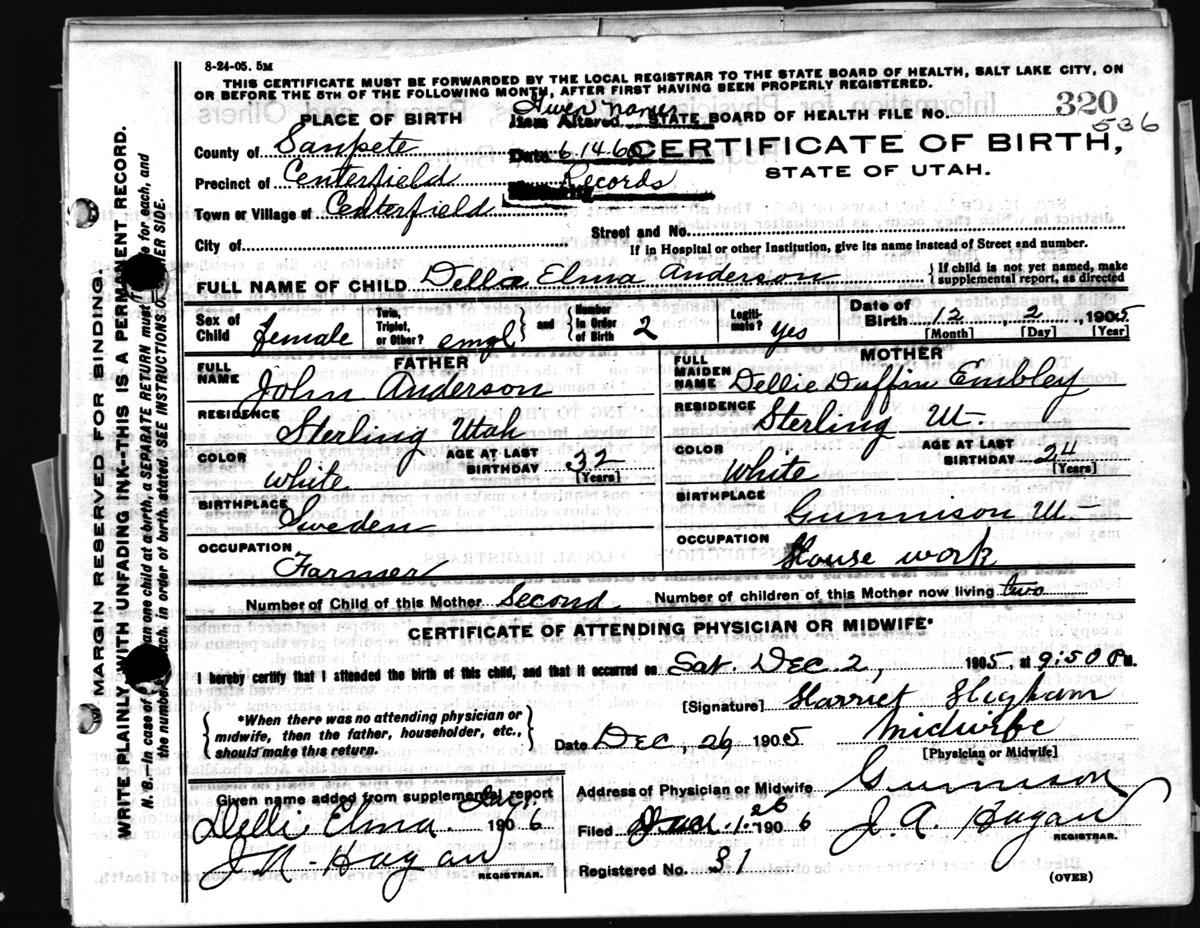 8-24-05. 5M
THIS CERTIFICATE MUST BE FORWARDED BY THE LOCAL REGISTRAR TO THE STATE BOARD OF HEALTH, SALT LAKE CITY, ON
OR BEFORE THE 5TH OF THE FOLLOWING MONTH, AFTER FIRST HAVING BEEN PROPERLY REGISTERED.
PLACE OF BIRTH
Given names
Item Altered STATE BOARD OF HEALTH FILE No. 320
536
County of Sanpete
Date 6.14.60
CERTIFICATE OF BIRTH,
STATE OF UTAH.
Precinct of Centerfield
Records
Town or Village of Centerfield
Street and No.
City of
If in Hospital or other Institution, give its name instead of Street and number.
FULL NAME OF CHILD Dellia Elma Anderson
{If child is not yet named, make
supplemental report, as directed
Sex of Child female
Twin, Triplet, or Other? } and { Number In Order of Birth 2
Legiti-mate? yes
Date of Birth 12 2 1905
[Month] [Day] [Year]
FATHER
FULL NAME John Anderson
RESIDENCE Sterling Utah
COLOR White
AGE AT LAST BIRTHDAY 32
[Years]
BIRTHPLACE Sweden
OCCUPATION Farmer
MOTHER
FULL MAIDEN NAME Dellie Duffin Embley
RESIDENCE Sterling Ut-
COLOR White
AGE AT LAST BIRTHDAY 24
[Years]
BIRTHPLACE Gunnison Ut-
OCCUPATION House work
Number of Child of this Mother Second Number of children of this Mother now living two
CERTIFICATE OF ATTENDING PHYSICIAN OR MIDWIFE*
I hereby certify that I attended the birth of this child, and that it occurred on Sat. Dec. 2, 1905, at 9:50 P.M.
[Signature] Harriet Higham
{ *When there was no attending physician or
midwife, then the father, householder, etc.,
should make this return. }
Date Dec, 26, 1905 Midwife
[Physician or Midwife]
Given name added from supplemental report
Elma. 1906
J. A. Hagan
REGISTRAR.
Address of Physician or Midwife Gunnison
Filed 26 1906 J. A. Hagan
REGISTRAR.
Registered No. 31
(OVER)
MARGIN RESERVED FOR BINDING.
WRITE PLAINLY WITH UNFADING INK--THIS IS A PERMANENT RECORD.
N. B.—In case of than one child at a birth, a SEPARATE RETURN must for each, and
the number each, in order of birth, stated. SEE INSTRUCTIONS SIDE.